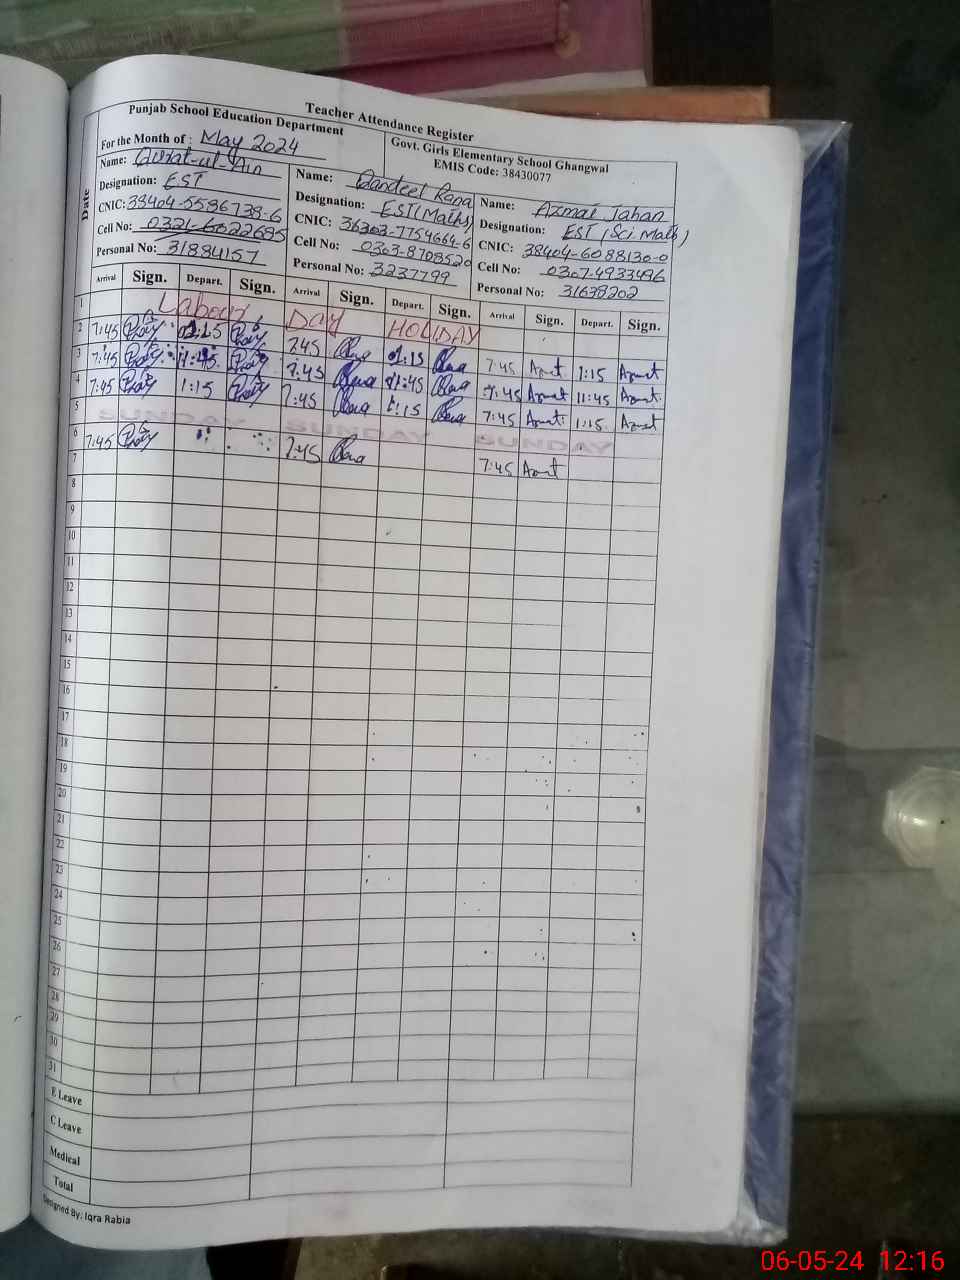 Teacher Attendance Register
Punjab School Education Department
Govt. Girls Elementary School Ghangwal
For the Month of : May 2024
EMIS Code: 38430077
Date
Name: Qurat-ul-Ain
Designation: EST
CNIC: 38404-5586738-6
Cell No: 0321-6022685
Personal No: 31884157
Name: Qandeel Rana
Designation: EST(Maths)
CNIC: 36303-7754664-6
Cell No: 0303-8708520
Personal No: 3237799
Name: Azmat Jahan
Designation: EST (Sci Math)
CNIC: 38404-6088130-0
Cell No: 0307-4933496
Personal No: 31638202
Arrival Sign. Depart. Sign. Arrival Sign. Depart. Sign. Arrival Sign. Depart. Sign.
1 Labour DAY HOLIDAY
2 7:45 01:15 7:45 01:15 7:45 Azmat 1:15 Azmat
3 7:45 11:45 7:45 11:45 7:45 Azmat 11:45 Azmat
4 7:45 1:15 7:45 1:15 7:45 Azmat 1:15 Azmat
5 SUNDAY SUNDAY SUNDAY
6 7:45 7:45 7:45 Azmat
7
8
9
10
11
12
13
14
15
16
17
18
19
20
21
22
23
24
25
26
27
28
29
30
31
E Leave
C Leave
Medical
Total
Designed By: Iqra Rabia
06-05-24 12:16